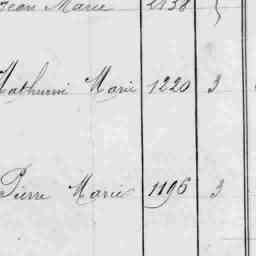 Jean Marie 2138
Mathurin Marie 1220 3
Pierre Marie 1196 3